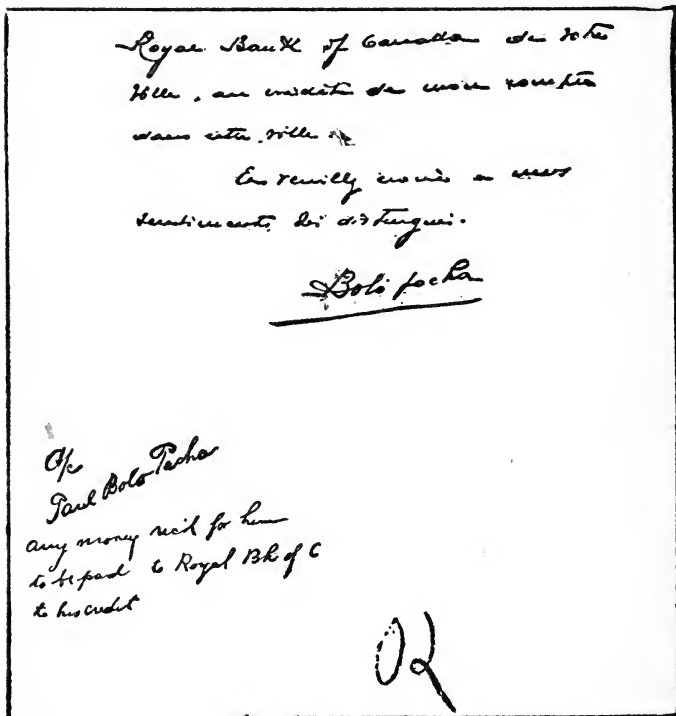 Royal Bank of Canada de votre
Ville, au crédit de mon compte
dans cette ville.
En veuillez croire a mes
sentiments les distingués.
Bolo pacha
A/c
Paul Bolo Pacha
any money rec'd for him
to be paid to Royal Bk of C
to his credit
OK